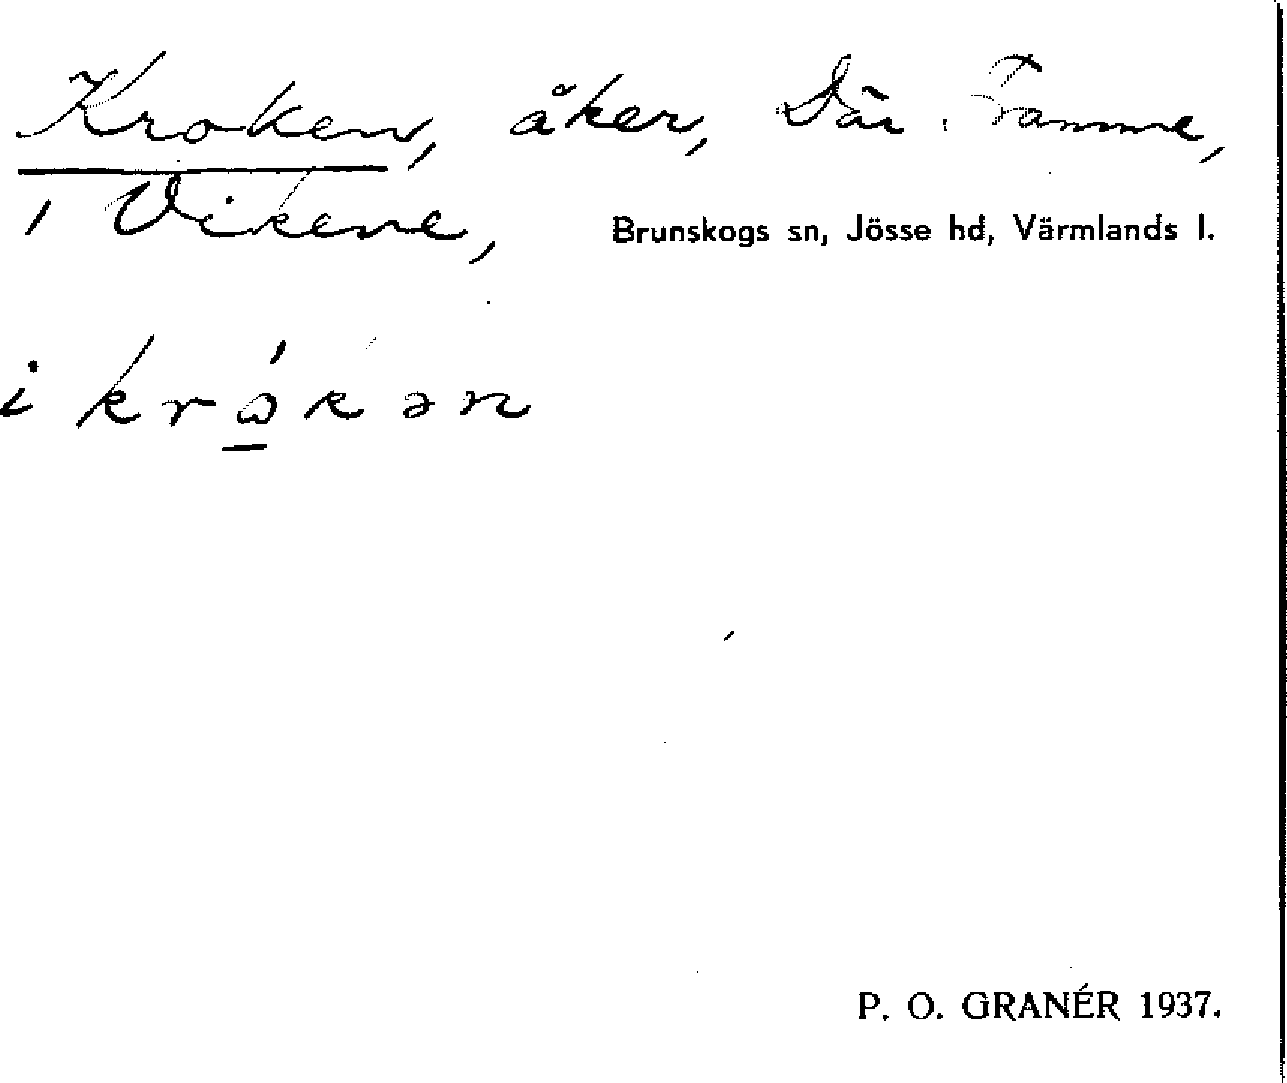 Kroken, åker, Där Framme,
i Vikene, Brunskogs sn, Jösse hd, Värmlands l.
i krώkən
P. O. GRANÉR 1937.